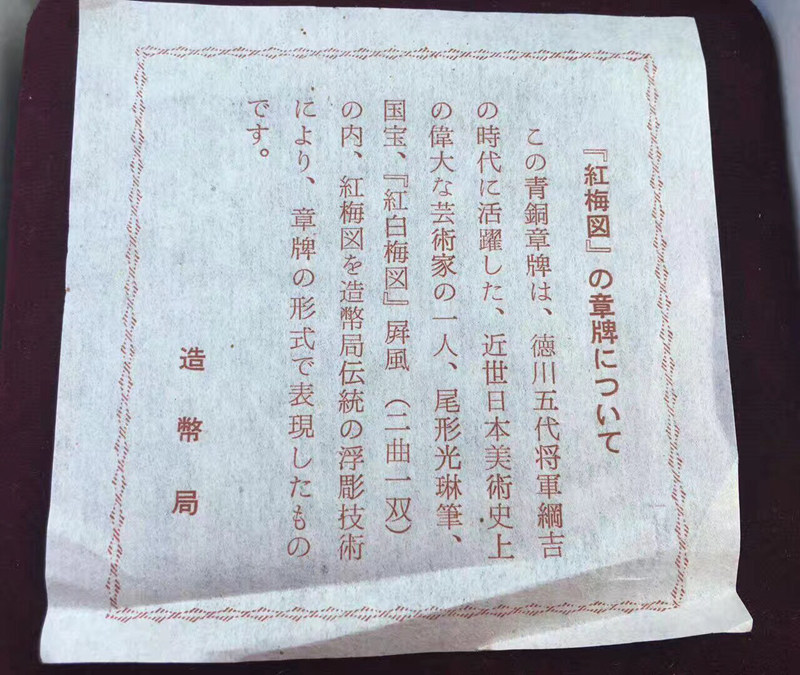 『紅梅図』の章牌について
この青銅章牌は、徳川五代将軍綱吉
の時代に活躍した、近世日本美術史上
の偉大な芸術家の一人、尾形光琳筆、
国宝、『紅白梅図』屛風（二曲一双）
の内、紅梅図を造幣局伝統の浮彫技術
により、章牌の形式で表現したもの
です。
造幣局